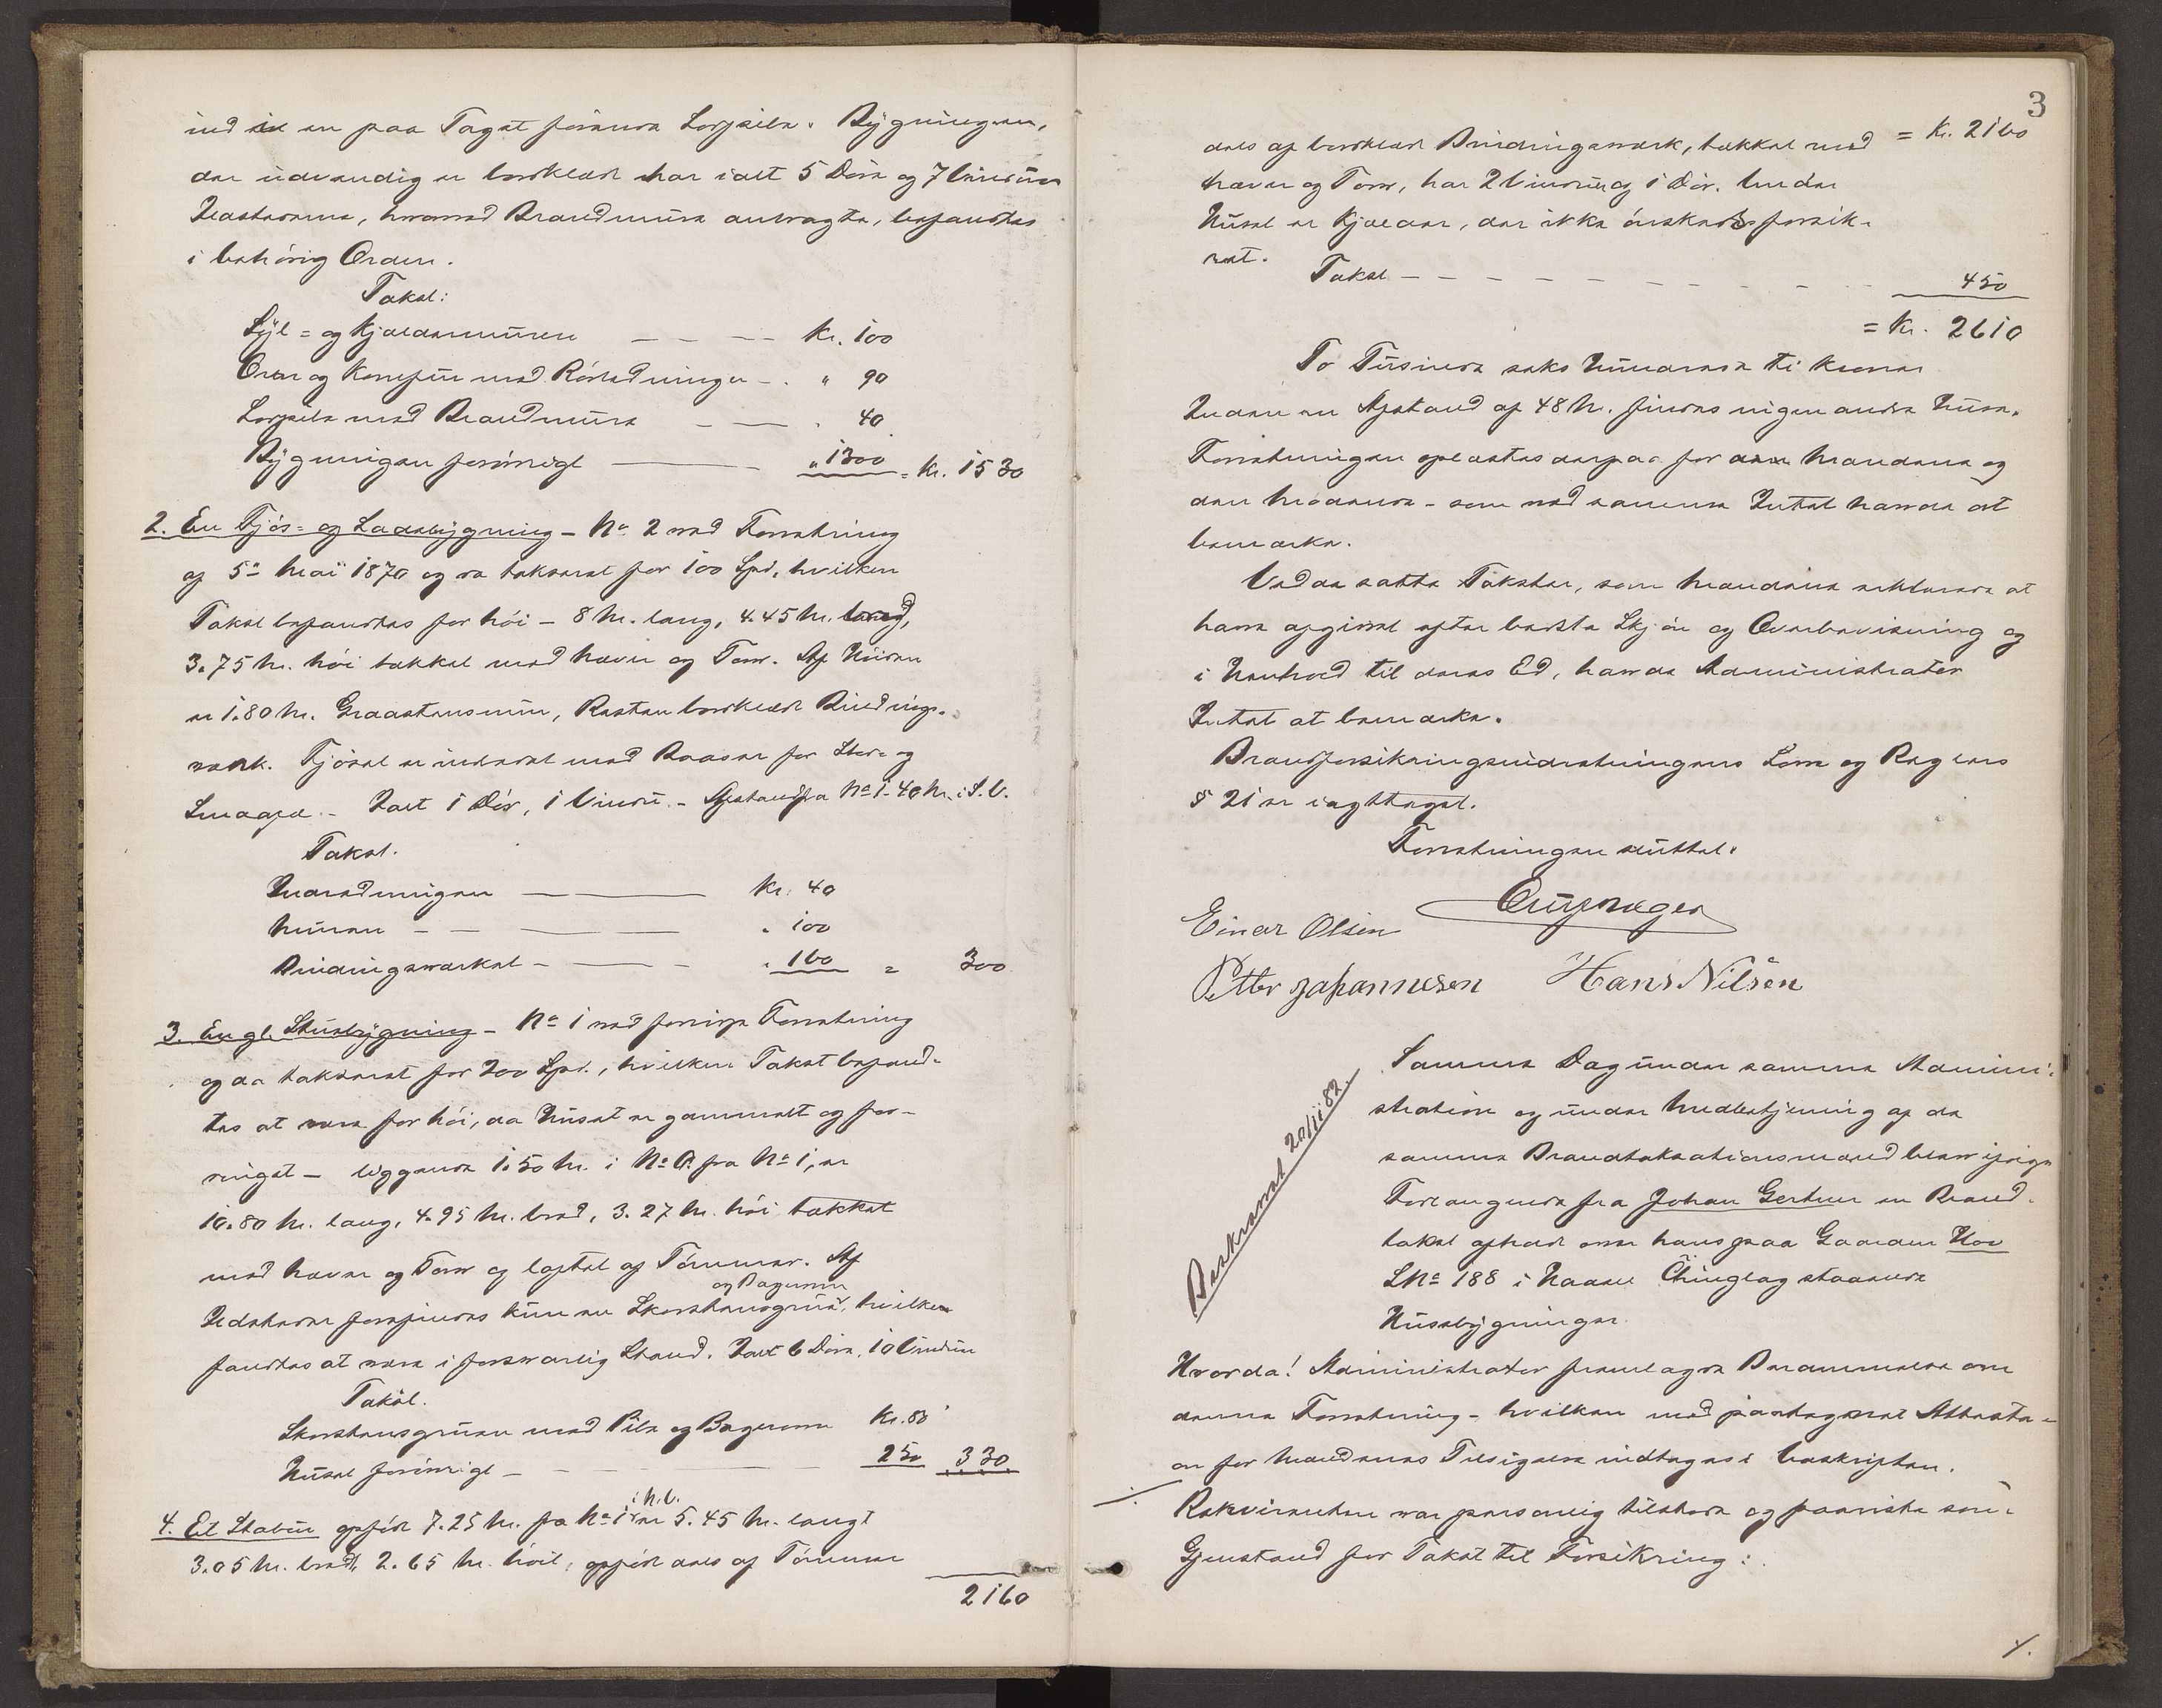 ind i en paa Taget førende Lorpibe. Bygningen,
der udvendig er bordklædt har ialt 5 Døre og 7 Vinduer
Ildstederne, hvorved Brandmure anbragte, befandtes
i behörig Orden.
Takst:
Syl- og Kjeldermuren — Kr. 100
Ovn og Komfur med Rörledninger — " 90
Lorpibe med Brandmure — " 40
Bygningen forövrigt — " 1300 = Kr. 1530
2. En Fjös- og Ladebygning - No 2 ved Forretning
af 5te Mai 1870 og da takseret for 100 Spd, hvilken
Takst befandtes for höi - 8 M. lang, 4.45 M. bred,
3.75 M. höi tækket med Næver og Torv. Af Höiden
er 1.80 M. Graastensmur, Resten bordklædt Bindings-
værk. Fjöset er indredet med Baaser for Stor- og
Smaafæ. - Ialt 1 Dör, 1 Vindu. - Afstand fra No 1 - 40 M. i S.V.
Takst.
Indredningen — Kr. 40
Muren — " 100
Bindingsverket — " 160 = 300
3. En gl. Stuebygning - No 1 ved forrige Forretning
og da takseret for 200 Spd., hvilken Takst befand-
tes at være for höi, da Huset er gammelt og for-
ringet - liggende 1.50 M. i N.O. fra No 1, er
10.80 M. lang, 4.95 M. bred, 3.27 M. höi tækket
med Næver og Torv og loftet af Tömmer. Af
og Bagerovn
Ildsteder forefindes kun en Skorstensgrue, hvilken
fandtes at være i forsvarlig Stand. Ialt 6 Döre, 10 Vinduer
Takst.
Skorstensgruen med Pibe og Bagerovn Kr. 80
Huset forövrigt — 250 330
i N.V.
4. Et Stabur opfört 7.25 M. fra No 1 er 5.45 M. langt
3.05 M. bredt, 2.65 M. höit, opfört dels af Tömmer
2160
3
dels af bordklædt Bindingsværk, tækket med = Kr. 2160
Næver og Torv, har 2 Vinduer og 1 Dör. Under
Huset er Kjelder, der ikke önskedes forsik-
ret. Takst — 450
= Kr. 2610
To Tusinde seks Hundrede ti Kroner
Inden en Afstand af 48 M. findes ingen andre Huse.
Forretningen oplæstes derpaa for Mændene og
den Mödende - som ved samme Intet havde at
bemærke.
Ved de satte Takster, som Mændene erklærede at
have afgivet efter bedste Skjön og Overbevisning og
i Henhold til deres Ed, havde Administrator
Intet at bemærke.
Brandforsikringsindretningens Love og Reglers
§ 21 er iagttaget.
Forretningen sluttet.
Einar Olsen
Petter Johannesen Hans Nilsen
Beskrevet 20/11 82.
Samme Dag under samme Admini-
stration og under Medbetjening af de
samme Brandtaksationsmænd blev ifölge
Forlangende fra Johan Gertsen en Brand-
takst afholdt over hans paa Gaarden Hov
L No 188 i Thinglag staaende
Husebygninger.
Hvorda! Administrator fremlagde Berammelse om
denne Forretning - hvilken med paategnet Attesta-
on for Mændenes Tilsigelse indtages i Beskriften.
./. Rekvirenten var personlig tilstede og paaviste som
Gjenstand for Takst til Forsikring:
./.